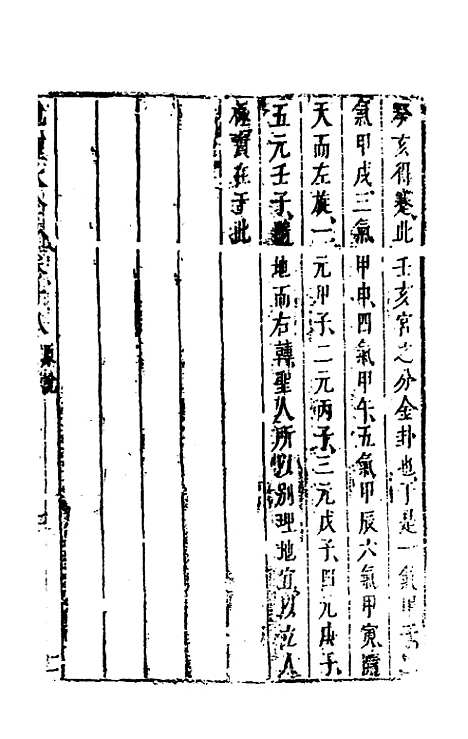 癸亥得蹇此壬亥宮之分金卦也于是一氣甲子二
氣甲戌三氣甲申四氣甲午五氣甲辰六氣甲寅隨
天而左旋一元甲子二元丙子三元戊子四元庚子
五元壬子隨地而右轉聖人所以別理地宜以立人
極實在于此